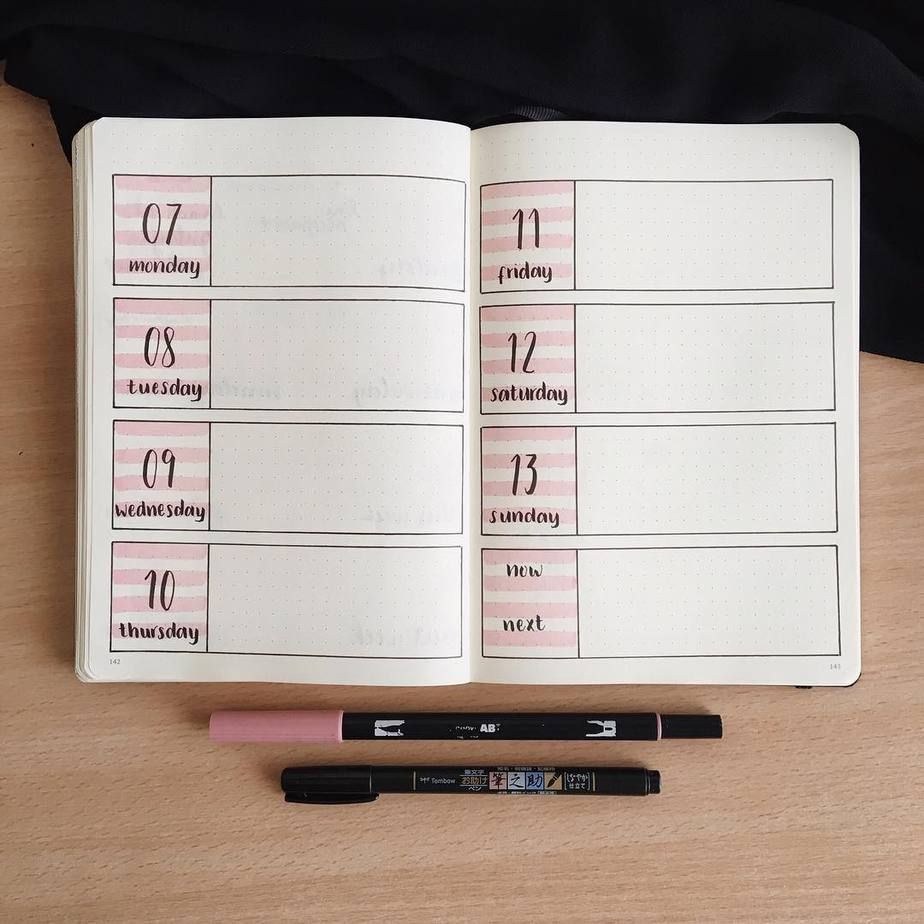 07
monday
08
tuesday
09
wednesday
10
thursday
142
11
friday
12
saturday
13
sunday
now
next
143
AB
Tombow
筆文字
お助け
ペン
筆之助
しなやか
仕立て